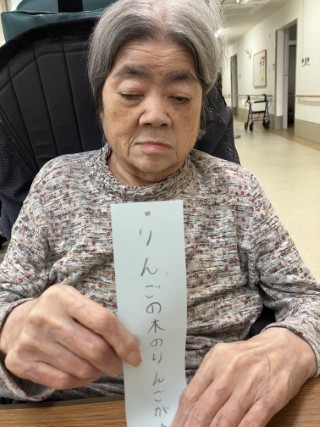 りんごの木のりんごが